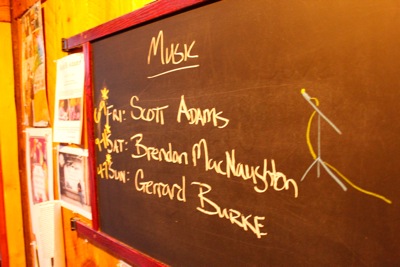 Music
Fri: Scott Adams
Sat: Brendon MacNaughton
Sun: Gerrard Burke